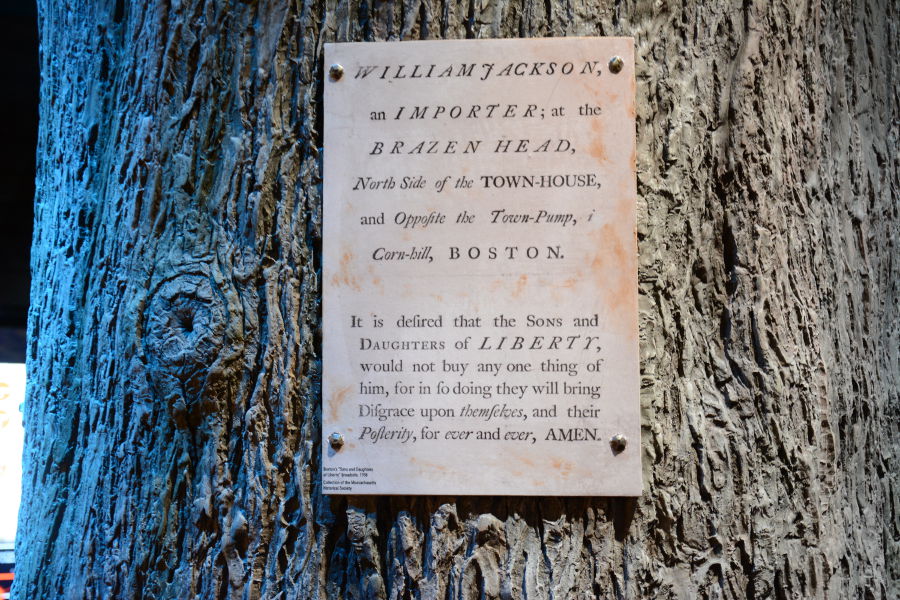 WILLIAM JACKSON,
an IMPORTER; at the
BRAZEN HEAD,
North Side of the TOWN-HOUSE,
and Oppoſite the Town-Pump, i
Corn-hill, BOSTON.
It is deſired that the SONS and
DAUGHTERS of LIBERTY,
would not buy any one thing of
him, for in ſo doing they will bring
Diſgrace upon themſelves, and their
Poſterity, for ever and ever, AMEN.
Boston's "Sons and Daughters
of Liberty" broadside,
Collection of the Massachusetts
Historical Society